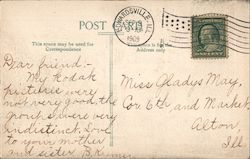 POST CARD
EDWARDSVILLE, ILL.
1909
This space may be used for
Correspondence
This space is for the
Address only
Dear friend:-
My Kodak
pictures were
not very good, the
groups were very
indistinct. Love
to your mother
and sister. B.K.
Miss Gladys May,
Cor 6th. and Market
Alton,
Ill